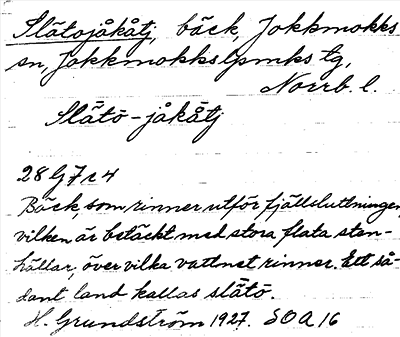 Slätojåkåtj, bäck, Jokkmokks
sn, Jokkmokks lpmks tg,
Norrb. l.
Slätō-jåkåtj
28 G 7 c 4
Bäck, som rinner utför fjällsluttningen,
vilken är betäckt med stora flata sten-
hällar, över vilka vattnet rinner. Ett så-
dant land kallas slätō.
H. Grundström 1927. SOA 16